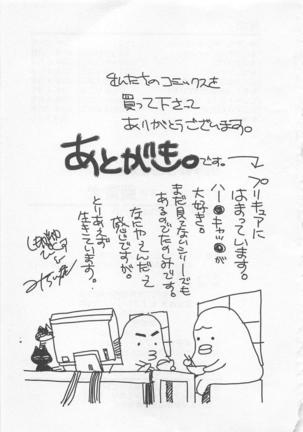 私たちのコミックスを
買って下さって
ありがとうございます。
あとがき。です。
プリキュアに
はまっています。
ハー●キャッ●が
大好き。
まだ見てないシリーズでも
あるのでたのしみです。
なにやってんだって
感じですが。
とりあえず
生きています。